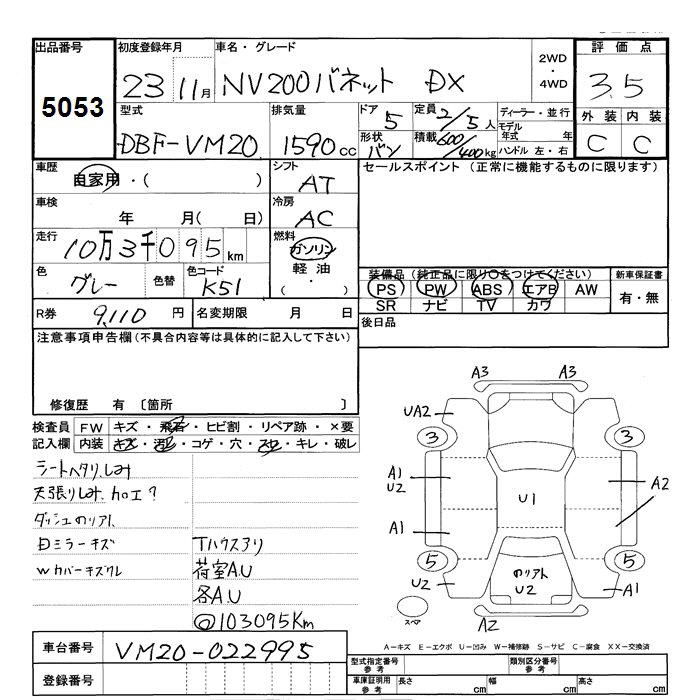 出品番号 初度登録年月 車名・グレード 評価点
5053 23 11月 NV200バネット DX 2WD・4WD 3.5
型式 排気量 ドア 定員 ディーラー・並行 外装 内装
DBF-VM20 1590cc 5 2/5人 モデル年式 年 C C
形状 バン 積載 600/400kg ハンドル 左・右
車歴 シフト セールスポイント(正常に機能するものに限ります)
自家用・( ) AT
車検 冷房
年 月( 日) AC
走行 燃料
10万3千095km ガソリン
軽油
・( )
色 色替 色コード 装備品(純正品に限り○をつけてください) 新車保証書
グレー K51 PS PW ABS エアB AW 有・無
SR ナビ TV カワ
R券 9,110円 名変期限 月 日 後日品
注意事項申告欄(不具合内容等は具体的に記入して下さい)
修復歴 有 〔箇所 〕
検査員 FW キズ・飛石・ヒビ割・リペア跡・×要
記入欄 内装 キズ・汚レ・コゲ・穴・スレ・キレ・破レ
シートヘタリ、しみ
天張りしみ、カロエ?
ダッシュのリアト
日ミラーキズ Tハウスアリ
Wカバーキズワレ 荷室A.U
各A.U
@103095Km
A3
A3
UA2
3 3
A1
U2
U1 A2
A1
5 5
のリアト
U2
U2 A1
スペア A2
A-キズ E-エクボ U-凹み W-補修跡 S-サビ C-腐食 XX-交換済
車台番号 VM20-022995
型式指定番号 参考 類別区分番号 参考
登録番号 車庫証明用 参考 長さ cm 幅 cm 高さ cm